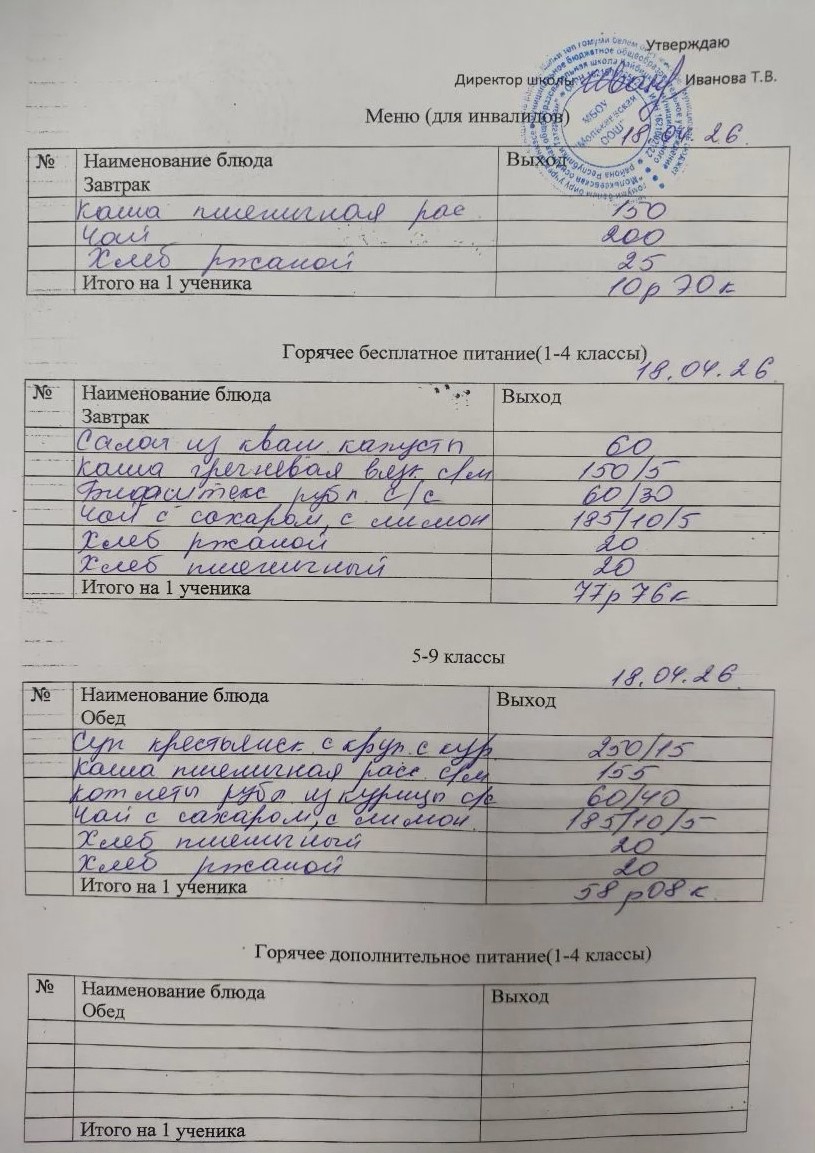 Утверждаю
Директор школы Иванова Т.В.
МБОУ
"Молькеевская
ООШ"
Меню (для инвалидов)
18.04.26.
№ Наименование блюда Выход
Завтрак
Каша пшеничная рас 150
Чай 200
Хлеб ржаной 25
Итого на 1 ученика 10р 70к
Горячее бесплатное питание(1-4 классы)
18.04.26
№ Наименование блюда Выход
Завтрак
Салат из кваш капусты 60
Каша гречневая вязк с/м 150/5
Бифштекс рубл с/с 60/30
Чай с сахаром, с лимон 185/10/5
Хлеб ржаной 20
Хлеб пшеничный 20
Итого на 1 ученика 77р 76к
5-9 классы
18.04.26
№ Наименование блюда Выход
Обед
Суп крестьянск с круп. с кур 250/15
Каша пшеничная расс с/м 155
Котлеты рубл из курицы с/с 60/40
Чай с сахаром, с лимон 185/10/5
Хлеб пшеничный 20
Хлеб ржаной 20
Итого на 1 ученика 58р08к.
Горячее дополнительное питание(1-4 классы)
№ Наименование блюда Выход
Обед
Итого на 1 ученика